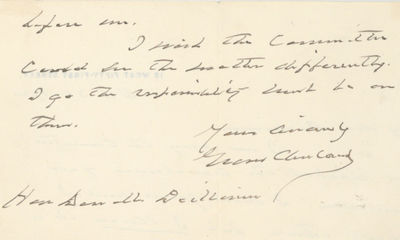 before me.
I wish the Committee
could see the matter differently.
I go the responsibility must be on
them.
Yours sincerely
Grover Cleveland
Hon Don M. Dickinson